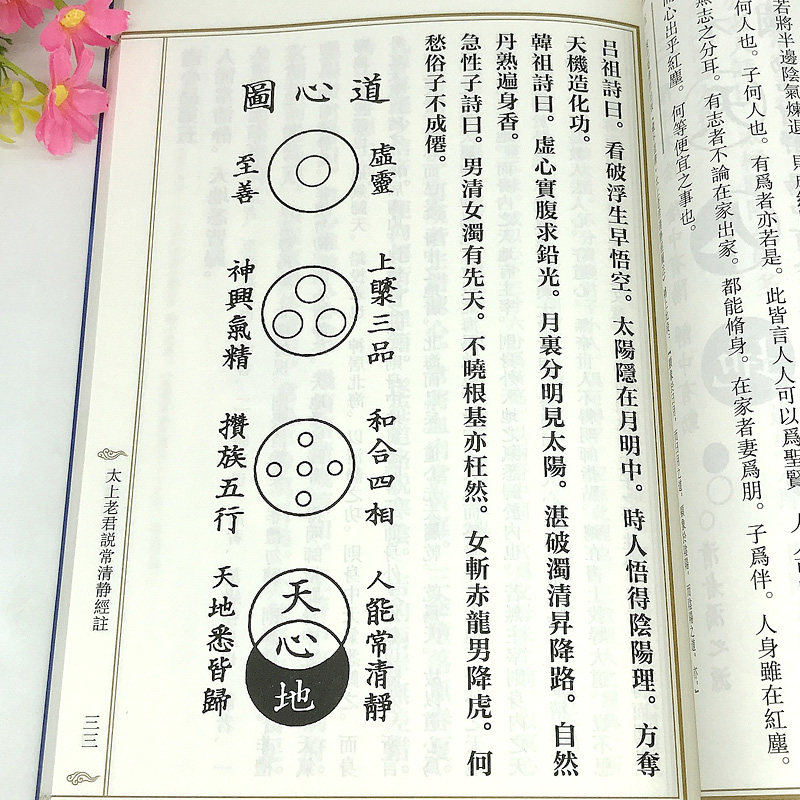 若將半邊陰氣煉退。
何人也。子何人也。有爲者亦若是。此皆言人人可以爲聖賢。
無志之分耳。有志者不論在家出家。都能脩身。在家者妻爲朋。子爲伴。人身雖在紅塵。
心出乎紅塵。何等便宜之事也。
呂祖詩曰。看破浮生早悟空。太陽隱在月明中。時人悟得陰陽理。方奪
天機造化功。
韓祖詩曰。虛心實腹求鉛光。月裏分明見太陽。湛破濁清昇降路。自然
丹熟遍身香。
急性子詩曰。男清女濁有先天。不曉根基亦枉然。女斬赤龍男降虎。何
愁俗子不成僊。
道心圖
虛靈
至善
上藥三品
神與氣精
和合四相
攢族五行
人能常清靜
天
心
地
天地悉皆歸
太上老君説常清静經註
三三